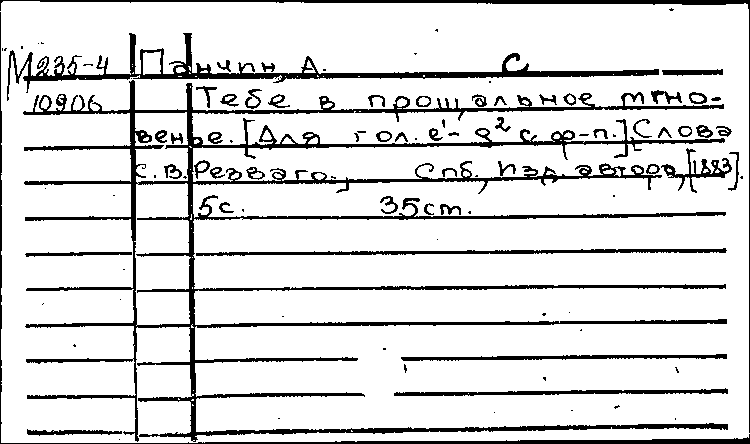 М235-4 Панчин, А. С
10906 Тебе в прощальное мгно-
венье. [Для гол. e¹- g² с ф-п.] Слова
С.В. Резваго., Спб., Изд. автора, [1883].
5с. 35cm.